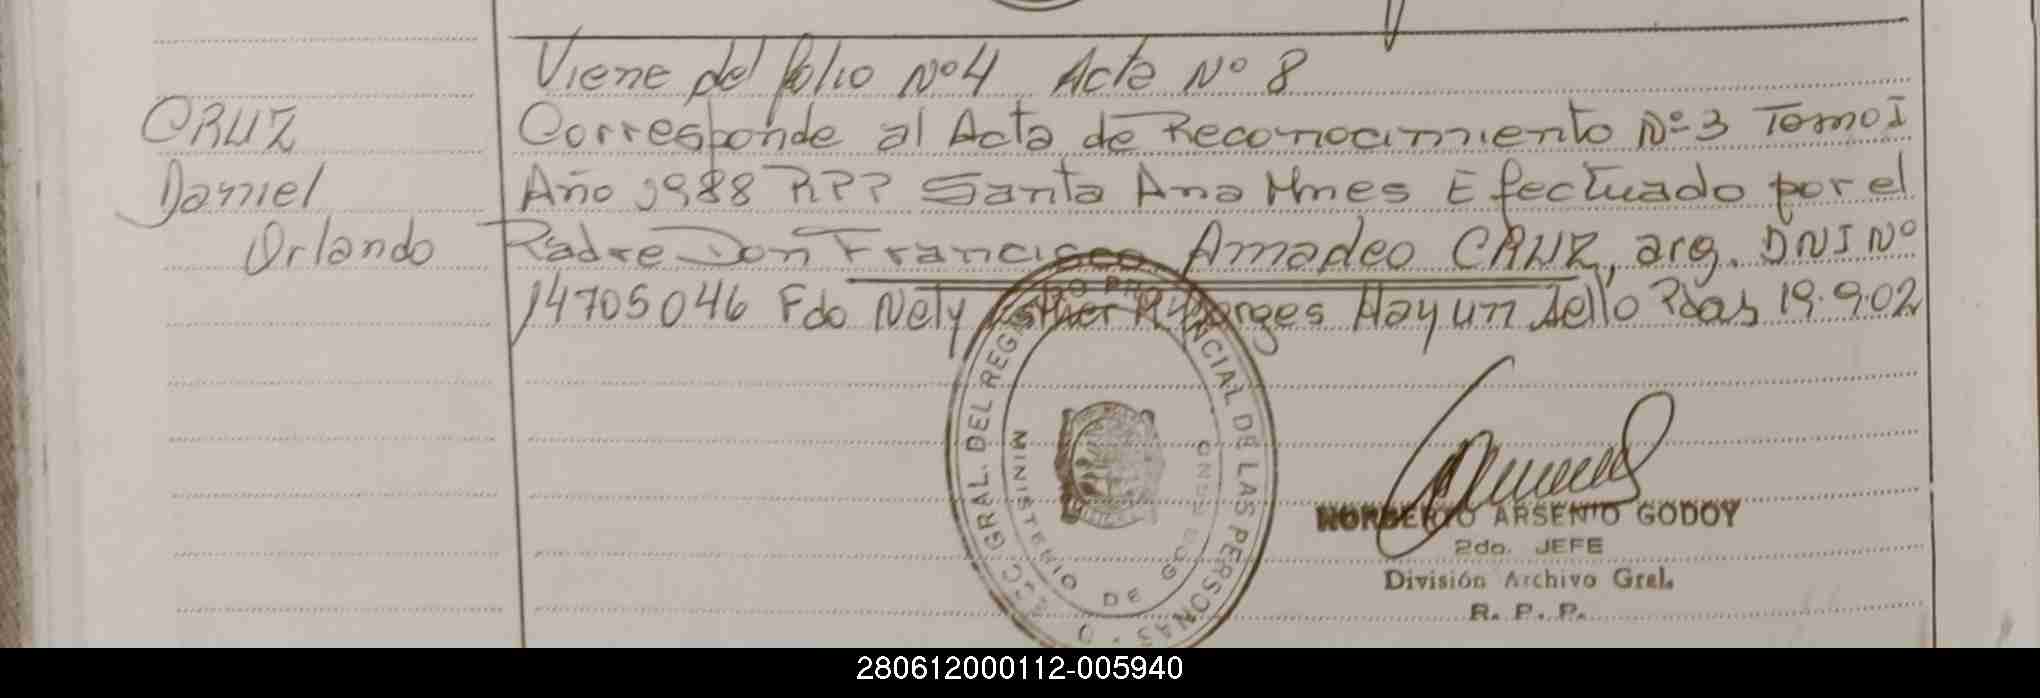 Viene del folio Nº 4 Acta Nº 8
CRUZ
Daniel
Orlando
Corresponde al Acta de Reconocimiento Nº 3 Tomo I
Año 1988 RPP Santa Ana Mnes Efectuado por el
Padre Don Francisco Amadeo CRUZ, arg. DNI Nº
14705046 Fdo Nely Esther R. Borges Hay un Sello Pdas 19.9.02
GRAL. DEL REGISTRO PROVINCIAL DE LAS PERSONAS
MINISTERIO DE GOBIERNO
NORBERTO ARSENIO GODOY
2do. JEFE
División Archivo Gral.
R. P. P.
280612000112-005940